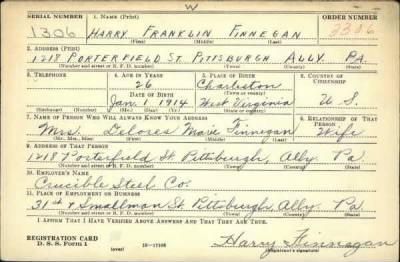 W
SERIAL NUMBER 1. NAME (Print) ORDER NUMBER
1306 HARRY FRANKLIN FINNEGAN 3306
(First) (Middle) (Last)
2. ADDRESS (Print)
1218 PORTERFIELD ST. PITTSBURGH ALLY. PA.
(Number and street or R. F. D. number) (Town) (County) (State)
3. TELEPHONE 4. AGE IN YEARS 5. PLACE OF BIRTH 6. COUNTRY OF CITIZENSHIP
26 Charleston
DATE OF BIRTH (Town or county)
Jan. 1, 1914 West Virginia U. S.
(Exchange) (Number) (Mo.) (Day) (Yr.) (State or country)
7. NAME OF PERSON WHO WILL ALWAYS KNOW YOUR ADDRESS 8. RELATIONSHIP OF THAT PERSON
Mrs. Delores Marie Finnegan Wife
(Mr., Mrs., Miss) (First) (Middle) (Last)
9. ADDRESS OF THAT PERSON
1218 Porterfield St. Pittsburgh, Ally. Pa.
(Number and street or R. F. D. number) (Town) (County) (State)
10. EMPLOYER'S NAME
Crucible Steel Co.
11. PLACE OF EMPLOYMENT OR BUSINESS
31st & Smallman St. Pittsburgh, Ally. Pa.
(Number and street or R. F. D. number) (Town) (County) (State)
I AFFIRM THAT I HAVE VERIFIED ABOVE ANSWERS AND THAT THEY ARE TRUE.
REGISTRATION CARD
D. S. S. Form 1 (over) 16—17105 Harry Finnegan
(Registrant's signature)